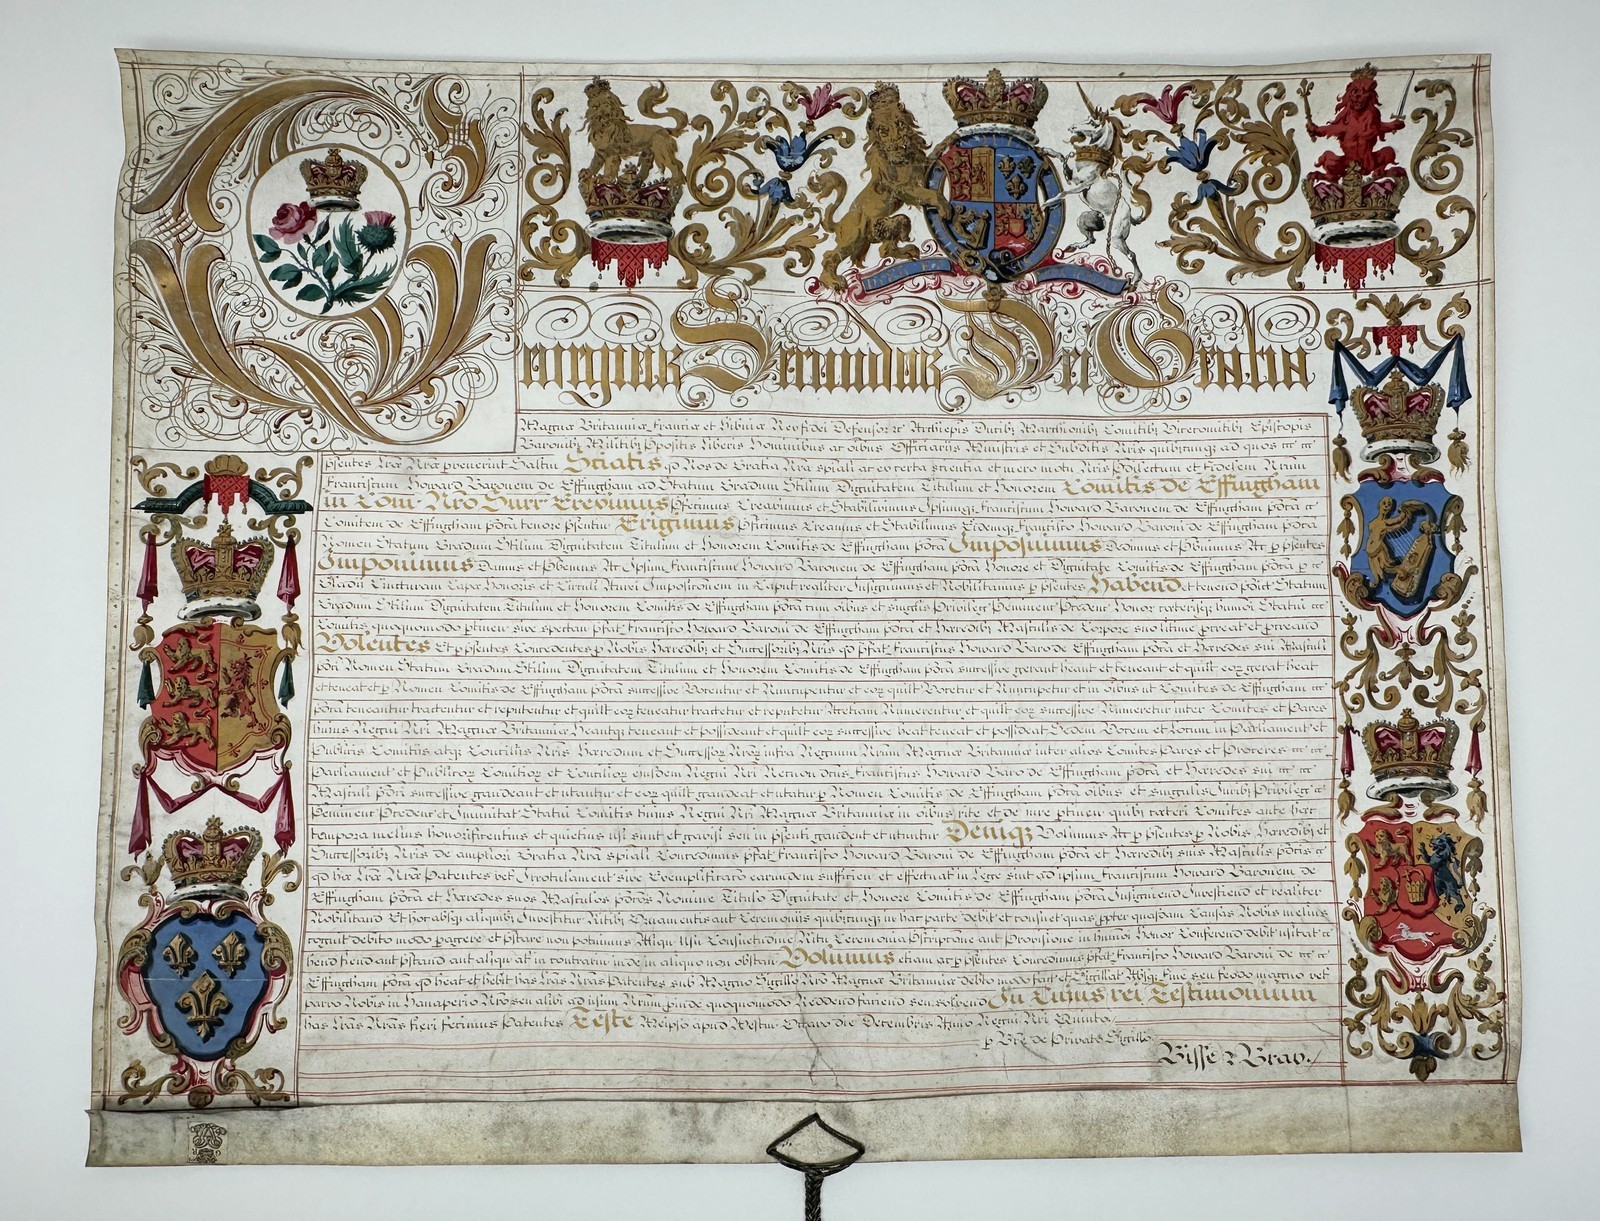 Georgius Secundus Dei Gratia
Magnæ Britanniæ Franciæ et Hiberniæ Rex fidei Defensor &c Archiepis Ducibȝ Marchionibȝ Comitibȝ Vicecomitibȝ Episcopis
Baronibȝ Militibȝ Ppositis Liberis Hominibus ac oibus Officiariis Ministris et Subditis Nris quibuscunqȝ ad quos &c &c
psentes Lræ Nræ pvenerint Saltm Sciatis qd Nos de Gratia Nra spiali ac ex certa scientia et mero motu Nris Pdilectum et Fidelem Nrum
Franciscum Howard Baronem de Effingham ad Statum Gradum Stilum Dignitatem Titulum et Honorem Comitis de Effingham
in Com Nro Surr Ereximus Pfecimus Creavimus et Stabilivimus Ipsumqȝ Franciscum Howard Baronem de Effingham pdca &c
Comitem de Effingham pdca tenore psentiu Erigimus Pficimus Creamus et Stabilimus Eidemqȝ Francisco Howard Baroni de Effingham pdca
Nomen Statum Gradum Stilum Dignitatem Titulum et Honorem Comitis de Effingham pdca Imposuimus Dedimus et Pbuimus Ac p psentes
Imponimus Damus et Pbemus Ac Ipsum Franciscum Howard Baronem de Effingham pdca Honore et Dignitate Comitis de Effingham pdca p &c
Gladii Cincturam Capæ Honoris et Circuli Aurei Impositionem in Caput realiter Insignimus et Nobilitamus p psentes Habend et tenend pdict Statum
Gradum Stilum Dignitatem Titulum et Honorem Comitis de Effingham pdca cum oibus et singlis Privilegs Peminent Pcedent Honor cæterisqȝ humoi Statui &c
Comitis quoquomodo ptinen sive spectan pfat Francisco Howard Baroni de Effingham pdca et Heredibȝ Masculis de Corpore suo ltime pcreat et pcreand
Volentes Et p psentes Concedentes p Nobis Heredibȝ et Successoribȝ Nris qd pfat Franciscus Howard Baro de Effingham pdca et Heredes sui Masculi
pdci Nomen Statum Gradum Stilum Dignitatem Titulum et Honorem Comitis de Effingham pdca successive gerant heant et teneant et quilt eoȝ gerat heat
et teneat et p Nomen Comitis de Effingham pdca successive Vocentur et Nuncupentur et eoȝ quilt Vocetur et Nuncupetur et in oibus ut Comites de Effingham &c
pdca teneantur tractentur et reputentur et quilt eoȝ teneatur tractetur et reputetur Acetiam Numerentur et quilt eoȝ successive Numeretur inter Comites et Pares
hujus Regni Nri Magnæ Britanniæ Heantqȝ teneant et possideant et quilt eoȝ successive heat teneat et possideat Sedem Vocem et Locum in Parliament et
Publicis Comitiis atqȝ Conciliis Nris Heredum et Successoȝ Nroȝ infra Regnum Nrum Magnæ Britanniæ inter alios Comites Pares et Proceres &c &c
Parliament et Publicoȝ Comitioȝ et Concilioȝ ejusdem Regni Nri Necnon dcus Franciscus Howard Baro de Effingham pdca et Heredes sui &c &c
Masculi pdci successive gaudeant et utantur et eoȝ quilt gaudeat et utatur p Nomen Comitis de Effingham pdca oibus et singulis Juribȝ Privilegs &c
Peminent Pcedent et Immunitat Statui Comitis hujus Regni Nri Magnæ Britanniæ in oibus rite et de jure ptinen quibȝ cæteri Comites ante hæc
tempora melius honorificentius et quietius usi sunt et gavisi seu in psenti gaudent et utuntur Deniqȝ Volumus Ac p psentes p Nobis Heredibȝ et
Successoribȝ Nris de ampliori Gratia Nra spiali Concedimus pfat Francisco Howard Baroni de Effingham pdca et Heredibȝ suis Masculis pdcis &c
qd hæ Lræ Nræ Patentes vel Irrotulament sive Exemplificaco earundem sufficien et effectual in Lege sint ad ipsum Franciscum Howard Baronem de
Effingham pdca et Heredes suos Masculos pdcos Nomine Titulo Dignitate et Honore Comitis de Effingham pdca Insigniend Investiend et realiter
Nobilitand Et hoc absqȝ aliquibȝ Investitur Ritibȝ Ornamentis aut Ceremoniis quibuscunqȝ in hac parte debit et consuet quas ppter quasdam Causas Nobis melius
cognit debito modo pagere et pstare non potuimus Aliqu Usu Consuetudine Ritu Ceremonia Pscriptione aut Provisione in humoi Honor Conferend debit usitat &c
hend fiend aut pstand aut aliqu al in contrarium inde in aliquo non obstan Volumus etiam ac p psentes Concedimus pfat Francisco Howard Baroni de &c &c
Effingham pdca qd heat et hebit has Lras Nras Patentes sub Magno Sigillo Nro Magnæ Britanniæ debito modo fact et Sigillat Absqȝ Fine seu feodo magno vel
parvo Nobis in Hanaperio Nro seu alibi ad usum Nrum pinde quoquomodo Reddend faciend seu solvend In Cujus rei Testimonium
has Lras Nras fieri fecimus Patentes Teste Meipso apud Westmr Octavo die Decembris Anno Regni Nri Quinto
p Bre de Privato Sigillo
Bisse & Bray